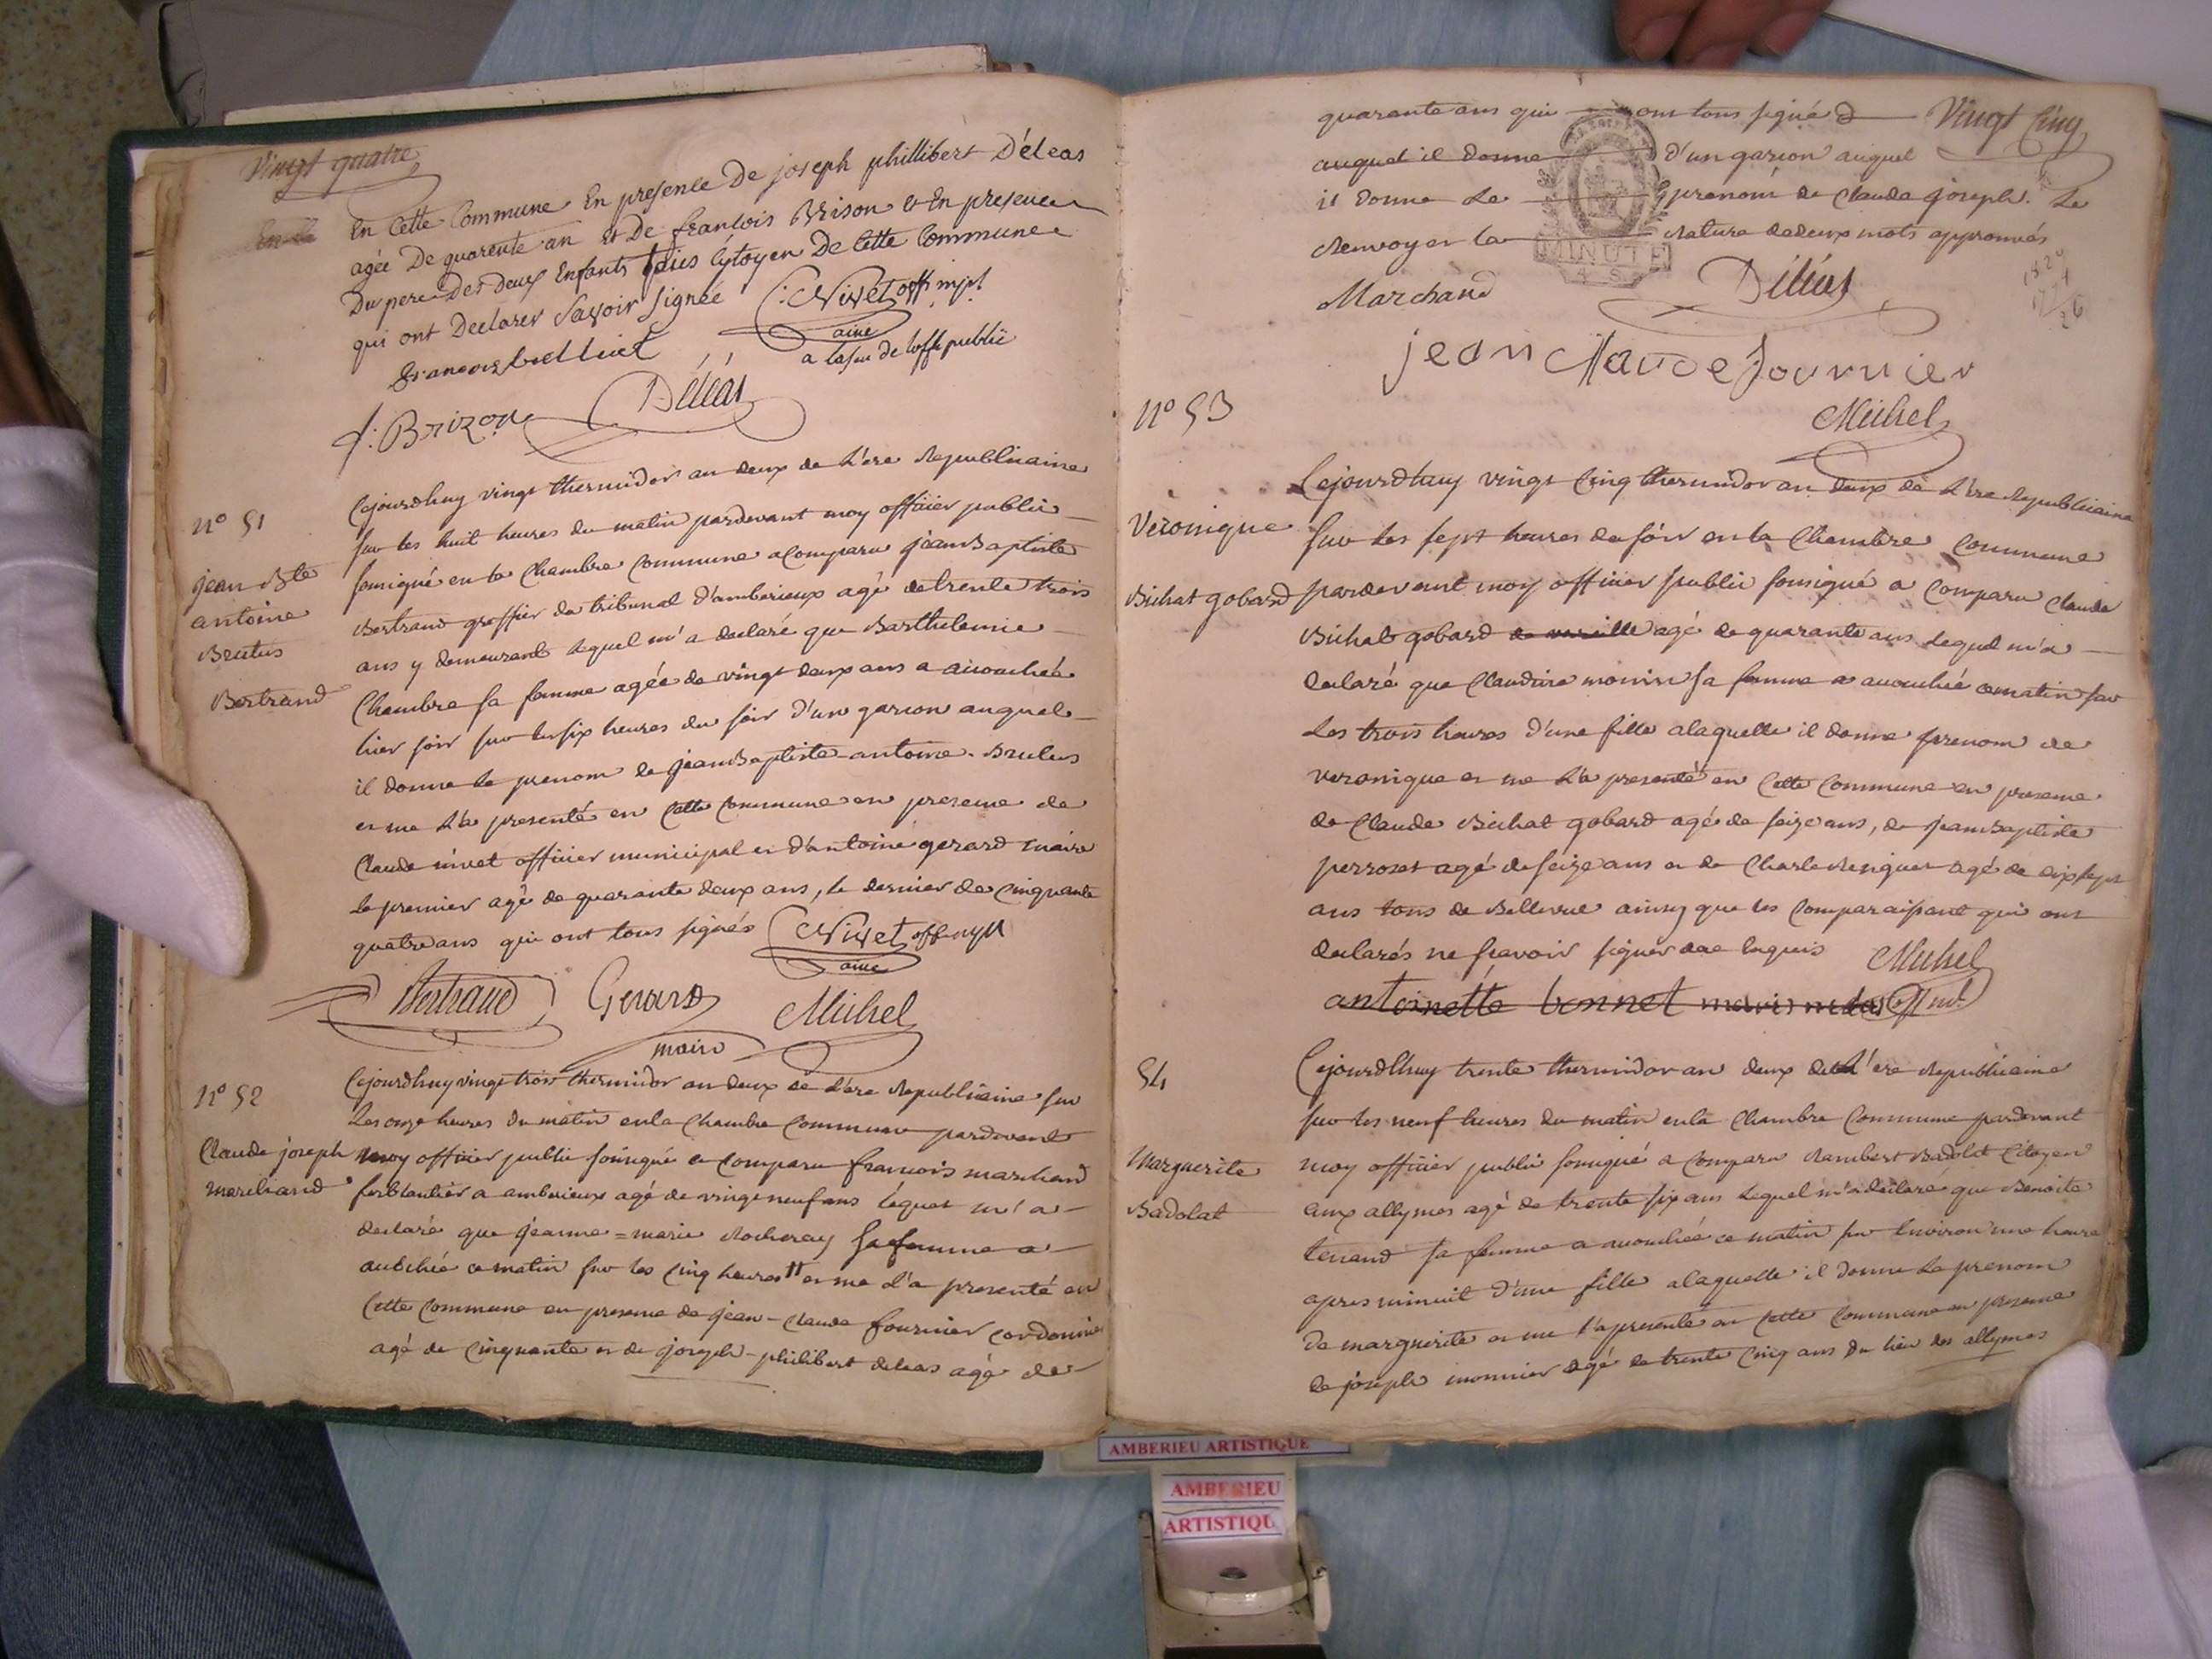 Vingt quatre
En la En Cette Commune En presence De joseph phillibert Déleas
agée De quarente an et De francois Brison et En presence
Du pere Des deux Enfants tous Cytoyen De Cette Commune
qui ont Declarer Savoir Signée C: Nivet off mpl
ainé
francois
a la de loff public
f: Brizon Déléas
Cejourdhuy vingt thermidor an deux de L'ere Republicaine
n° 51
sur les huit heures du matin pardevant moy officier public
jean Bte
soussigné en la Chambre Commune a Comparu jean Baptiste
antoine
Bertrand greffier du tribunal d'amberieux agé de trente trois
Brutus
ans y demeurant lequel m'a declaré que Barthelemie
Bertrand
Chambre sa femme agée de vingt deux ans a accouchée
hier soir sur les six heures du soir d'un garcon auquel
il donne le prenom de jean Baptiste antoine - Brutus
et me L'a presenté en Cette Commune en presence de
Claude nivet officier municipal et d'antoine gerard maire
Le premier agé de quarante deux ans, le dernier de Cinquante
quatre ans qui ont tous signés C Nivet off mpl
ainé
Bertrand Gerard Michel
maire
n° 52
Cejourdhuy vingt trois thermidor an deux de L'ere Republicaine sur
Les onze heures du matin en la Chambre Commune pardevant
Claude joseph
moy officier public soussigné a Comparu francois marchand
marchand
ferblantier a amberieux agé de vingt neuf ans lequel m'a
declaré que jeanne = marie sa femme a
ce matin sur les Cinq heures et me L'a presenté en
Cette Commune en presence de jean - Claude fournier Cordonnier
agé de Cinquante et de joseph - philibert deleas agé de
quarante ans qui ont tous signé Vingt Cinq
auquel il donne d'un garcon auquel
il donne Le prenom de Claude joseph. Le
Renvoy en la Rature de deux mots approuvés
MINUTE
4 S
Marchand Déléas
jean Claude fournier
n° 53
Michel
Cejourdhuy vingt Cinq thermidor an deux de L'ere Republicaine
Veronique
sur Les sept heures du soir en la Chambre Commune
Bichat gobard
pardevant moy officier public soussigné a Comparu Claude
Bichat gobard agé de quarante ans Lequel m'a
declaré que Claudine monin sa femme a accouchée ce matin sur
Les trois heures d'une fille a laquelle il donne prenom de
veronique et me L'a presenté en Cette Commune en presence
de Claude Bichat gobard agé de seize ans, de jean Baptiste
perroset agé de seize ans et de Charle agé de dix sept
ans tous de Bellevue ainsy que les Comparaissant qui ont
declarés ne scavoir signer de ce Requis Michel
antoinette bonnet
54
Cejourdhuy trente thermidor an deux de L'ere Republicaine
sur les neuf heures du matin en la Chambre Commune pardevant
Marguerite
moy officier public soussigné a Comparu Rambert Badolat Citoyen
Badolat
aux allymes agé de trente six ans Lequel m'a declaré que Benoite
tenand sa femme a accouchée ce matin sur Environ une heure
apres minuit d'une fille a laquelle il donne Le prenom
De marguerite et me l'a presenté en Cette Commune en presence
de joseph monnier agé de trente Cinq ans du lieu des allymes
AMBERIEU ARTISTIQUE
AMBERIEU
ARTISTIQU